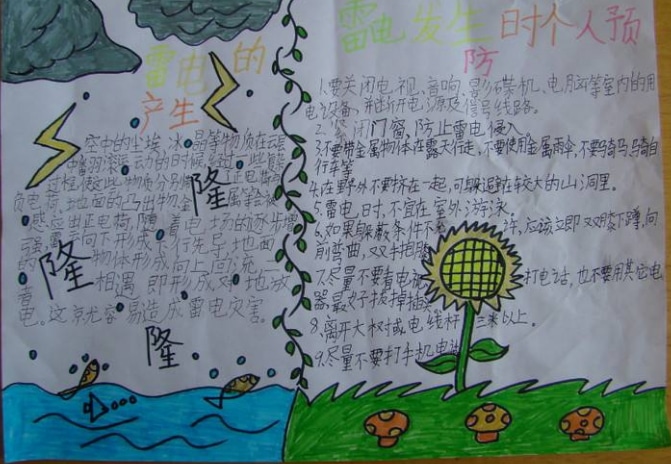 雷电的
产生
空中的尘埃、冰晶等物质在云层
中翻滚运动的时候,经过一些复
过程,使这些物质分别
负电荷,地面的凸出物、金属等会被
感应出正电荷,随着电场的逐步增
强,雷云向下形成下行先导,地面
的物体形成向上回流,
相遇,即形成对地放
电。这就容易造成雷电灾害。
隆
隆
隆
雷电发生时个人预
防
1.要关闭电视、音响、影碟机、电脑等室内的用
电设备,并断开电源及信号线路。
2.紧闭门窗,防止雷电侵入
3.不要带金属物体在露天行走,不要使用金属雨伞,不要骑马,骑自
行车等
4.在野外不要挤在一起,可躲避在较大的山洞里。
5.雷电时,不宜在室外游泳
6.如果躲蔽条件不 许,应该立即双膝下蹲,向
前弯曲,双手抱膝
7.尽量不要看电视 打电话,也不要用其它电
器,最好拔掉插头
8.离开大树或电线杆 三米以上。
9.尽量不要打手机电话